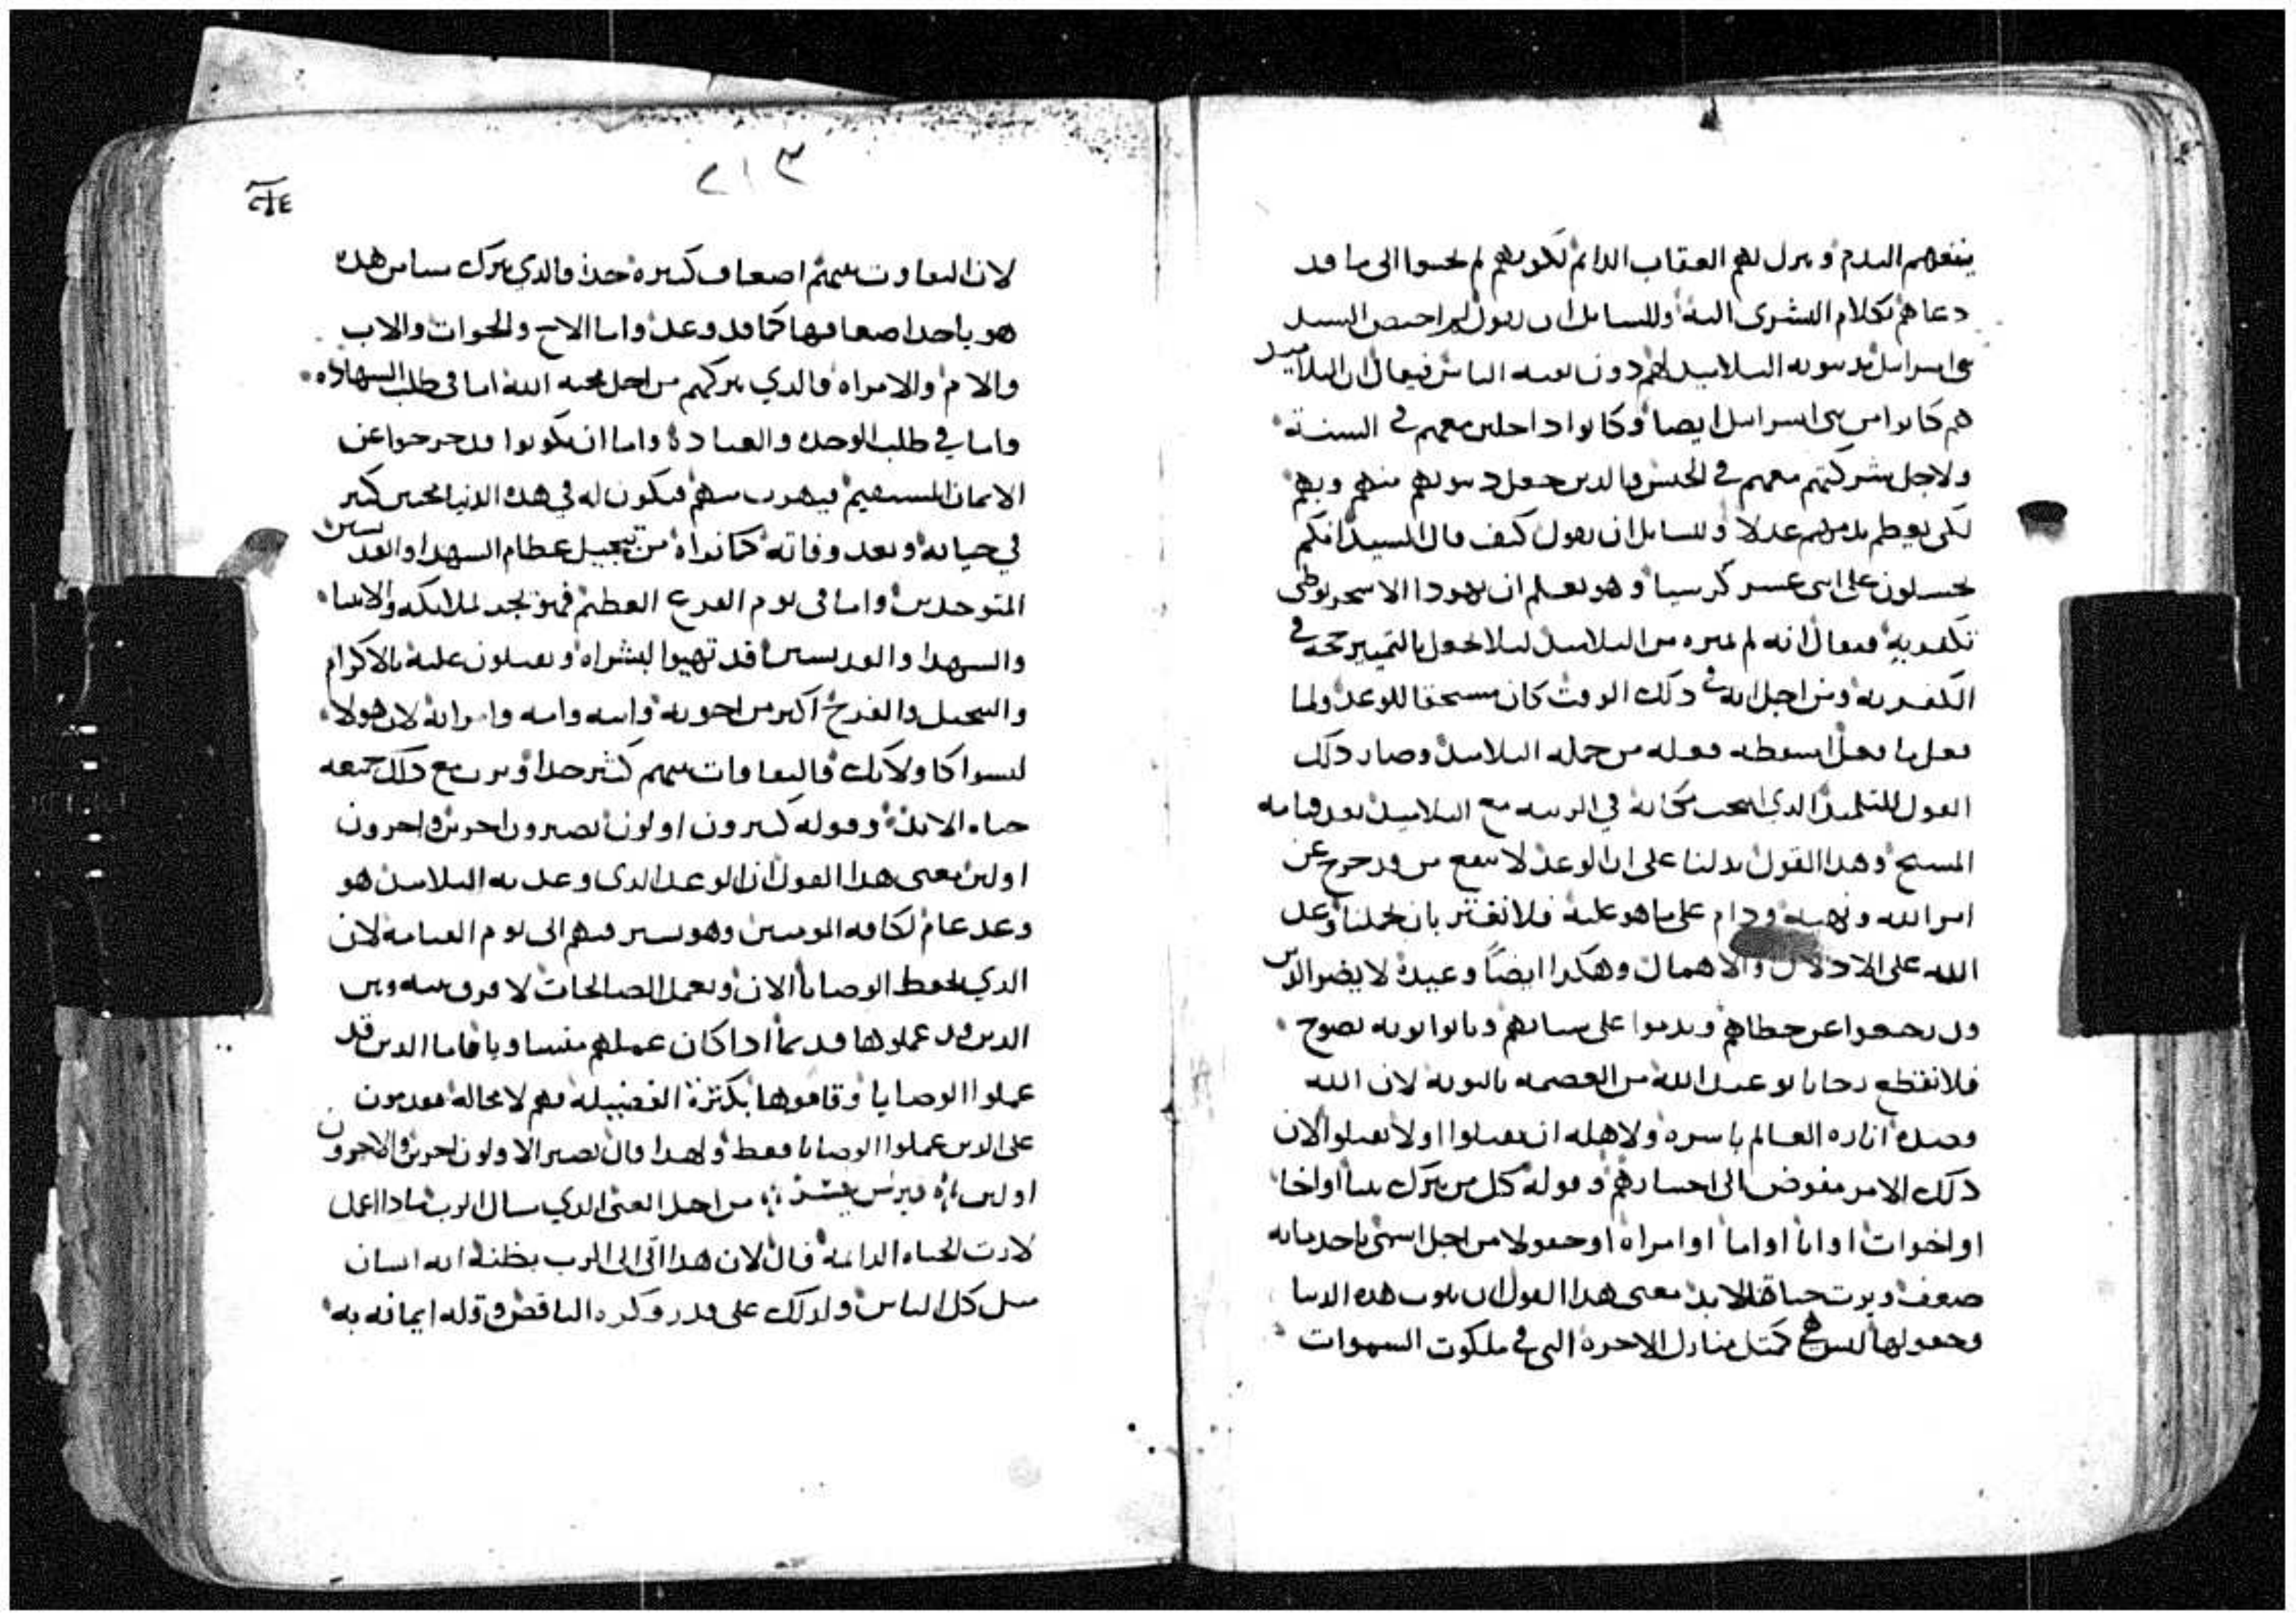 ينفعهم الندم وينزل بهم العقاب الدايم لكونهم لم يحسوا الى ما قد
دعاهم بكلام البشرى اليه وللسايل ان يقول لم اختص السيد
بنى اسرايل بدينونه التلاميذ لهم دون بقيه الناس فيقال ان التلاميد
هم كانوا من بنى اسرايل ايضا وكانوا داخلين معهم في السنة
ولاجل شركتهم معهم في الجنس والدين جعل دينونتهم منهم وبهم
لكى يعظم عدلا وللسايل ان يقول كيف قال السيد انكم
تجلسون على اثنى عشر كرسيا وهو يعلم ان يهودا الاسخريوطى
يكفر به فيقال انه لم يميزه من التلاميذ ليلا يجعل بالتمييز حجه في
الكفر به ومن اجل انه في ذلك الوقت كان مستحقا للوعد ولما
فعل ما فعل اسقطه فعله من جمله التلاميذ وصار ذلك
القول للتلميذ الذي انتخب مكانه في الرتبه مع التلاميذ بعد قيامه
المسيح وهذا القول يدلنا على ان الوعد لا ينفع من قد خرج عن
امر الله ونهيه ودام على ما هو عليه فلا نغتر بان يحملنا وعد
الله على الادلال والاهمال وهكذا ايضاً وعيده لا يضر الذين
قد رجعوا عن خطاهم وندموا على سياتهم وتابوا توبه نصوح
فلا نقطع رجانا توعيد الله من العصمه بالتوبه لان الله
قصده انارة العالم باسره ولاهله ان يقبلوا او لا يقبلوا لان
ذلك الامر مفوض الى اختيارهم وقوله كل من يترك بيتا او اخا
او اخوات او ابا او اما او امراه او حقولا من اجل اسمى ياخد مايه
ضعف ويرث حياة الابد معنى هذا القول ان بيوت هذه الدنيا
وحقولها ليس هي كمثل منازل الاخرة التي في ملكوت السموات
٢١٣
لان التفاوت بينهم اضعاف كثيره جدا فالذي يترك شيا من هذه
هو ياخد اضعافها كما قد وعد واما الاخ والاخوات والاب
والام والامراه فالذي يتركهم من اجل محبه الله اما فى طلب الشهاده
واما في طلب الوحده والعباده واما ان يكونوا قد خرجوا عن
الايمان المستقيم فيهرب منهم فيكون له في هذه الدنيا محبين كثير
في حياته وبعد وفاته كما نراه من تبجيل عظام الشهدا والقديسين
المتوحدين واما فى يوم الفزع العظيم فهو يجد الملايكه والانبياء
والشهدا والقديسين قد تهيوا لبشراه ويقبلون عليه بالاكرام
والتبجيل والفرح اكثر من اخوته وابيه وامه وامراته لان هولاء
ليسوا كاولايك فالتفاوت بينهم كثير جدا ويرث مع ذلك جميعه
حياه الابد وقوله كثيرون اولون يصيرون اخرين واخرون
اولين يعنى هذا القول ان الوعد الذى وعد به التلاميذ هو
وعد عام لكافه المومنين وهو يسير فيهم الى يوم القيامه لان
الذي يحفظ الوصايا الان ويعمل الصالحات لا فرق بينه وبين
الدين قد عملوها قديما اذا كان عملهم متساويا فاما الذين قد
عملوا الوصايا وقاموها بكثرة الفضيله فهم لا محاله مقدمون
على الدين عملوا الوصايا فقط ولهذا قال يصير الاولون اخرين والاخرون
اولين من اجل الغنى الذي سال الرب ماذا اعمل
لارث الحياه الدايمه قال لان هذا اتى الى الرب بظنه انه انسان
مثل كل الناس ولذلك على قدر فكره الناقص وقله ايمانه به